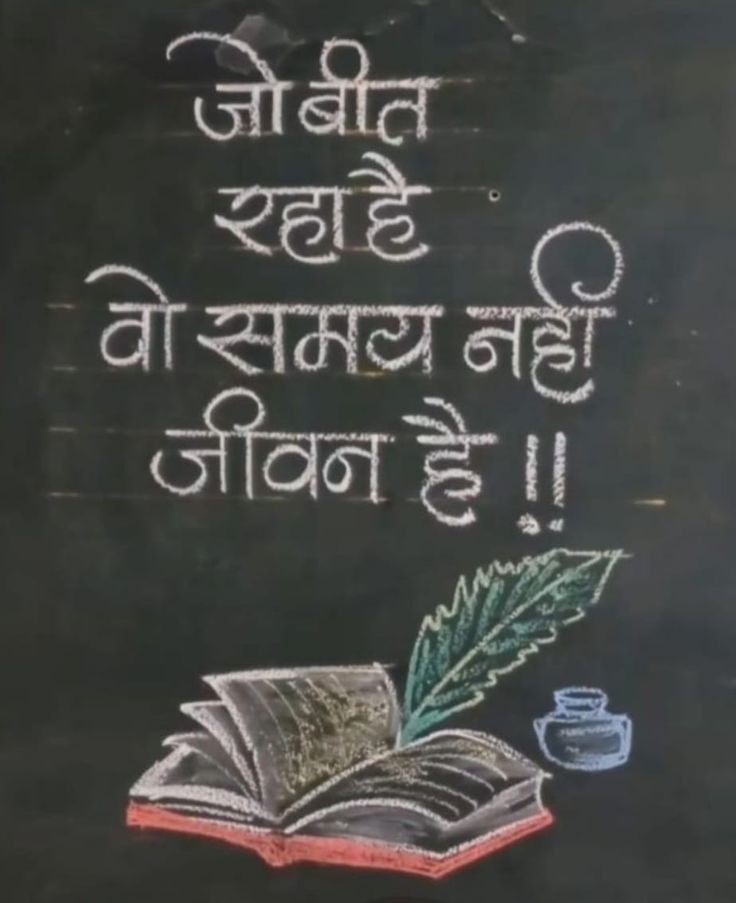 जो बीत
रहा है
वो समय नहीं
जीवन है !!